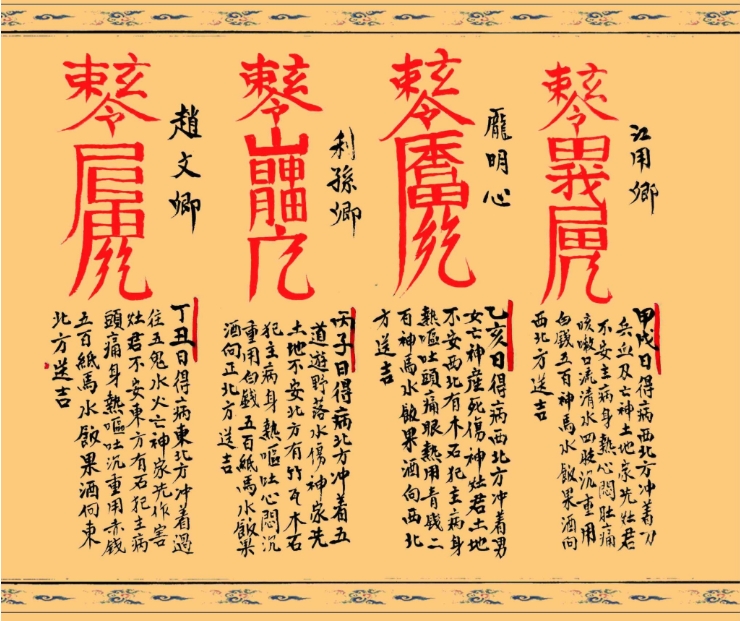 江用卿
甲戌日得病西北方冲着刀
兵血及亡神土地家先灶君
不安主病身熱心悶肚痛
咳嗽口流清水四肢沉重用
白錢五百神馬水飯果酒向
西北方送吉
龎明心
乙亥日得病西北方冲着男
女亡神産死傷神灶君土地
不安西北有木石犯主病身
熱嘔吐頭痛眼熱用青錢二
百神馬水飯果酒向西北
方送吉
利孫卿
丙子日得病北方冲着五
道遊野落水傷神家先
土地不安北方有竹瓦木石
犯主病身熱嘔吐心悶沉
重用白錢五百紙馬水飯果
酒向正北方送吉
趙文卿
丁丑日得病東北方冲着過
往五鬼水火亡神家先作害
灶君不安東方有石犯主病
頭痛身熱嘔吐沉重用赤錢
五百紙馬水飯果酒向東
北方送吉